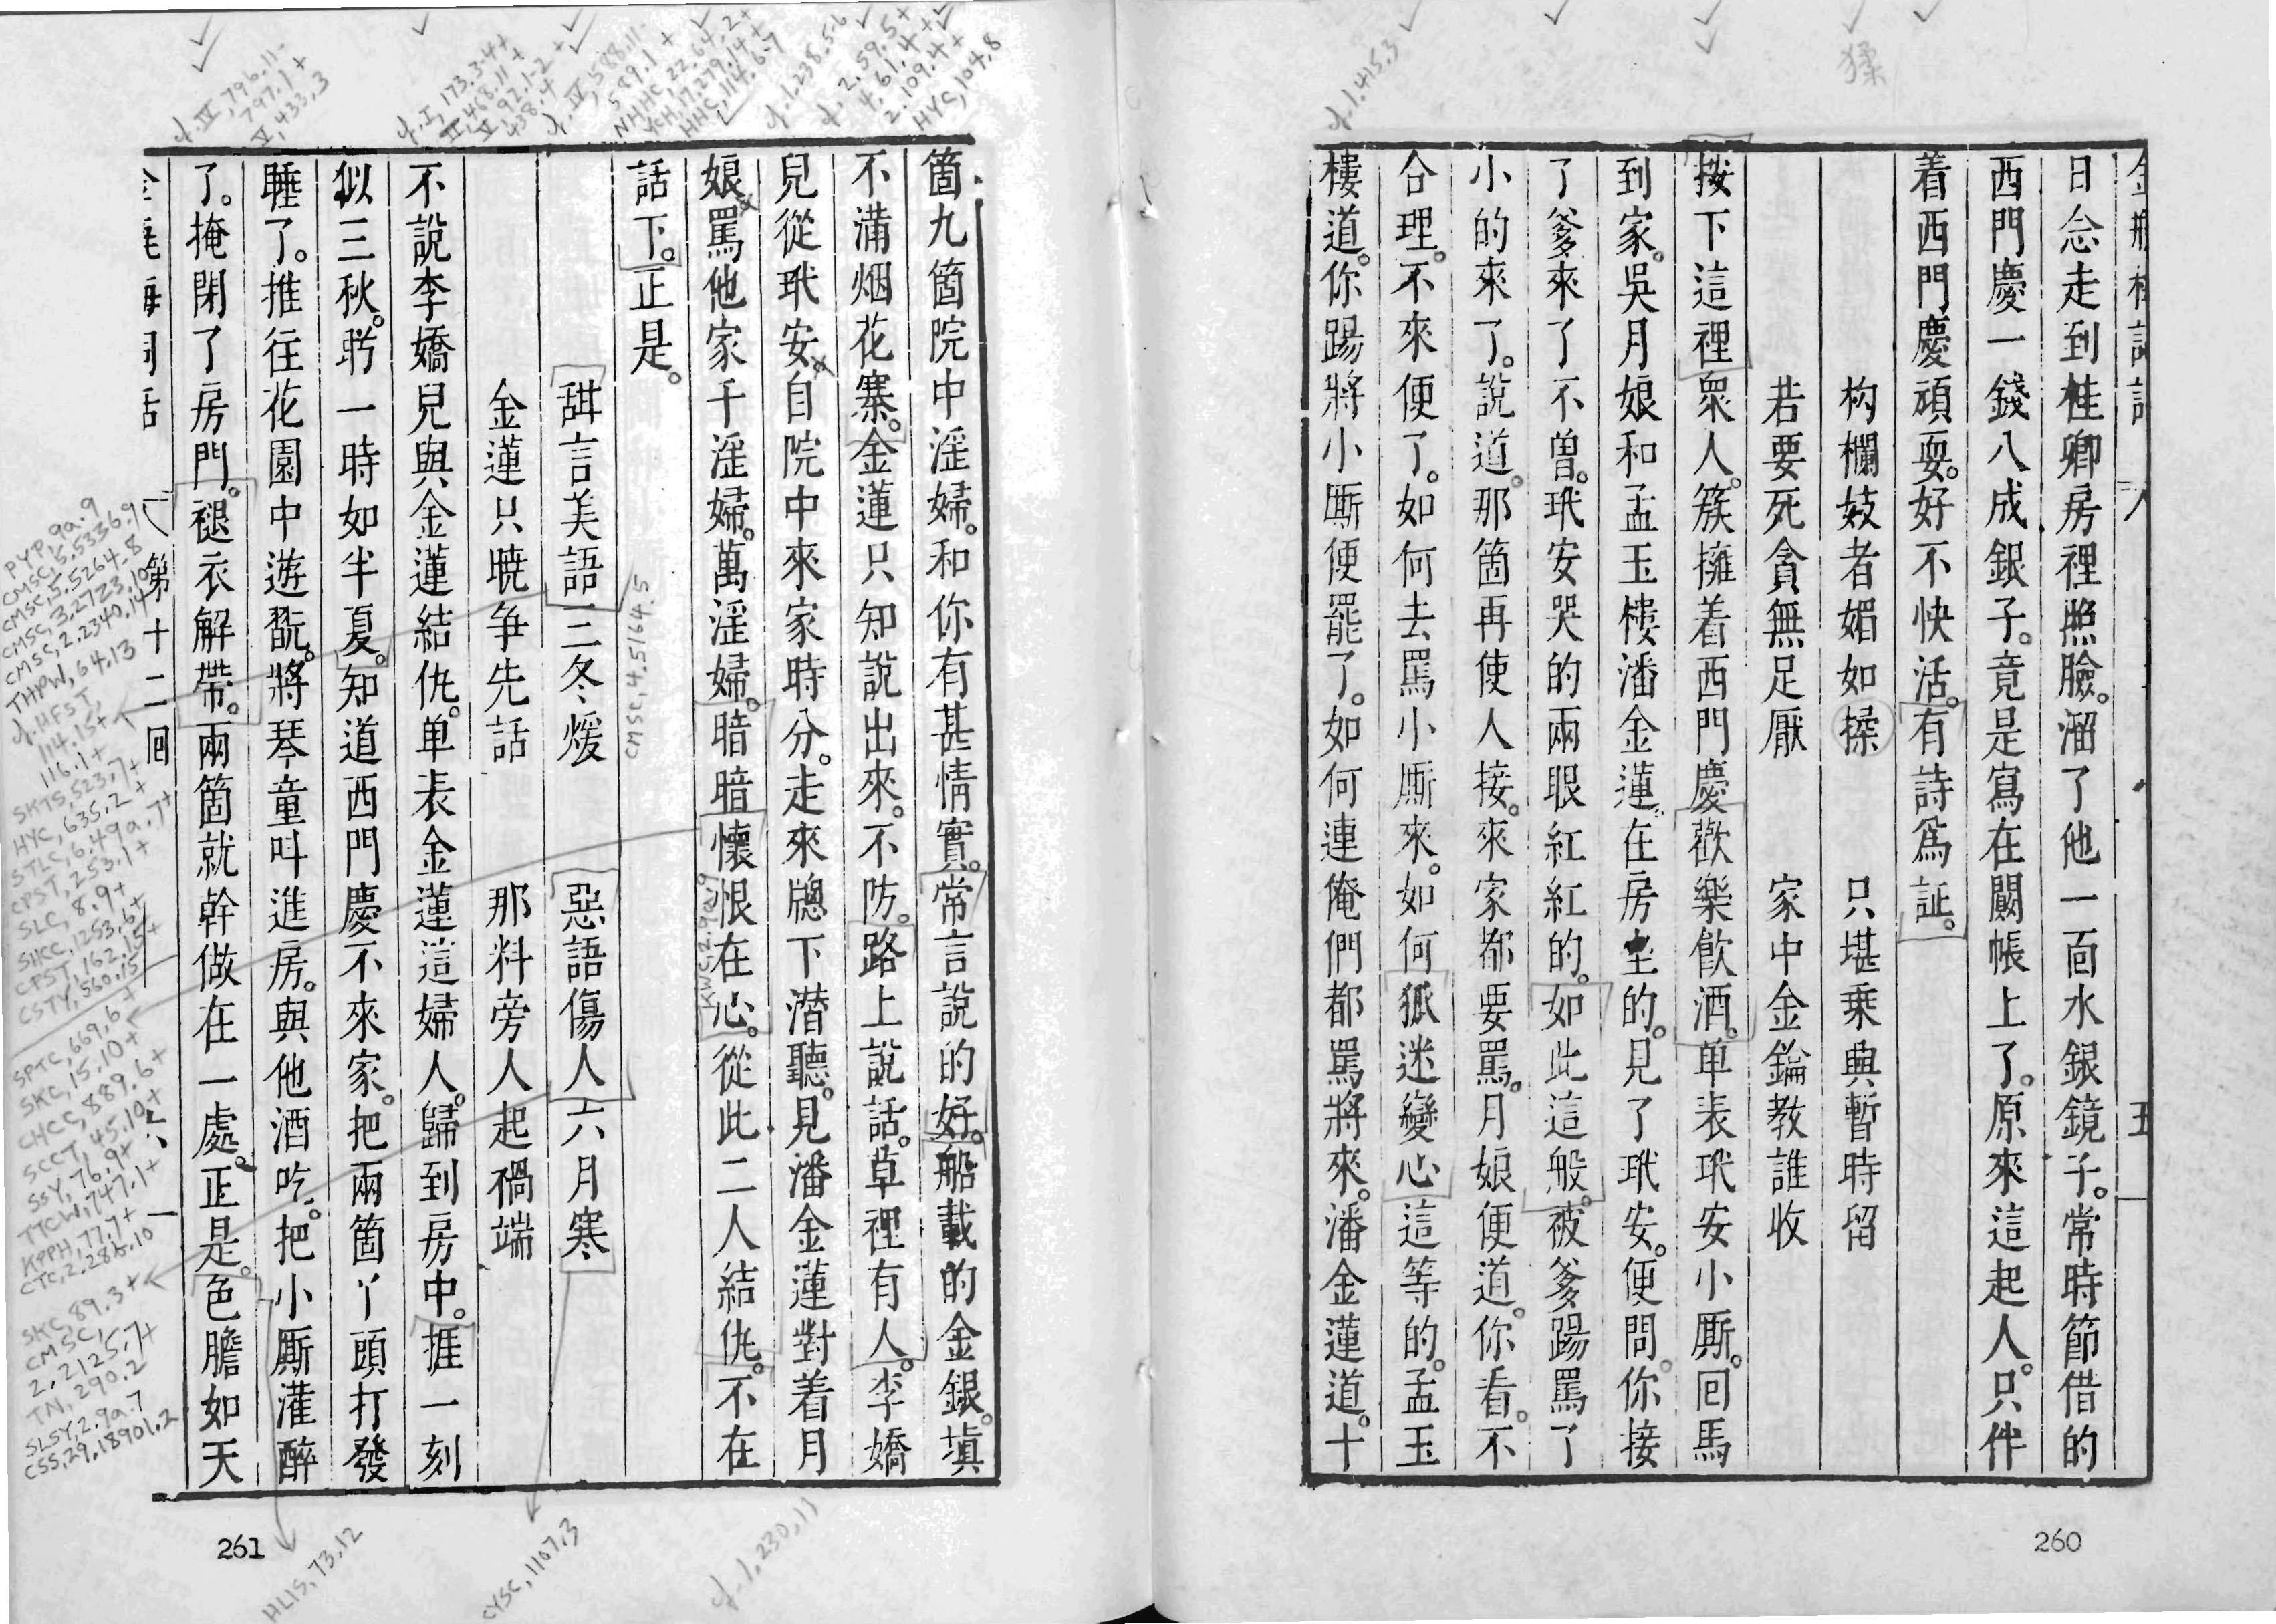 日念走到桂卿房裡照臉。溜了他一面水銀鏡子。常時節借的
西門慶一錢八成銀子。竟是寫在闞帳上了。原來這起人。只伴
着西門慶頑耍。好不快活。有詩為証。
构欄妓者媚如猱 只堪乗興暫時留
若要死貪無足厭 家中金鑰教誰收
按下這裡衆人。簇擁着西門慶歡樂飲酒。单表玳安小厮。回馬
到家。吳月娘和孟玉樓潘金蓮。在房坐的。見了玳安。便問。你接
了爹來了不曾。玳安哭的兩眼紅紅的。如此這般。被爹踢罵了
小的來了。說道。那箇再使人接。來家都要罵。月娘便道。你看。不
合理。不來便了。如何去罵小厮來。如何狐迷變心這等的。孟玉
樓道。你踢將小厮便罷了。如何連俺們都罵將來。潘金蓮道。十
260
箇九箇院中淫婦。和你有甚情實。常言說的好。船載的金銀。填
不滿烟花寨。金蓮只知說出來。不防。路上說話。草裡有人。李嬌
兒從玳安自院中來家時分。走來牕下潜聽。見潘金蓮對着月
娘罵他家千淫婦。萬淫婦。暗暗懷恨在心。從此二人結仇。不在
話下。正是。
甜言美語三冬煖 惡語傷人六月寒
金蓮只曉争先話 那料旁人起禍端
不說李嬌兒與金蓮結仇。单表金蓮這婦人。歸到房中。捱一刻
似三秋。盻一時如半夏。知道西門慶不來家。把兩箇丫頭打發
睡了。推往花園中遊翫。將琴童叫進房。與他酒吃。把小厮灌醉
了。掩閉了房門。褪衣解帶。兩箇就幹做在一處。正是。色膽如天
第十二回
261
cf. 1.415.3
猱
cf. IV, 796.11-
797.1+
V, 433.3
cf. I, 173.3-4+
II, 468.11+
V, 92.1-2+
438.4
cf. IV, 588.11-
589.1+
NHHC, 22.64.2+
YCH, 17.279.14+
HHC, 114.6-7
cf. 1.238.5-6
cf. 2.59.5+
4.61.4+
2.109.4+
HYC, 104.8
CMSC, 4.5164.5
PYP, 9a.9
CMSC, 5.5336.9
CMSC, 5.5264.8
CMSC, 3.2723.10
CMSC, 2.2340.14
THPW, 64.13
cf. HFST,
114.15+
116.1+
SKTS, 523.7+
HYC, 635.2+
STLC, 6.49a.7+
CPST, 253.1+
SLC, 8.9+
SHCC, 1253.6+
CPST, 162.15+
CSTY, 560.15
SPTC, 669.6+
SKC, 15.10+
CHCC, 889.6+
SCCT, 45.10+
SSY, 76.9+
TTCW, 747.1+
KPPH, 77.7+
CTC, 2.28b.10
SKC, 89.3+
CMSC,
2.2125.7+
TN, 290.2
SLSY, 2.9a.7
CSS, 29.18901.2
HLIS, 73.12
CYSC, 1107.3
cf. 1.230.11